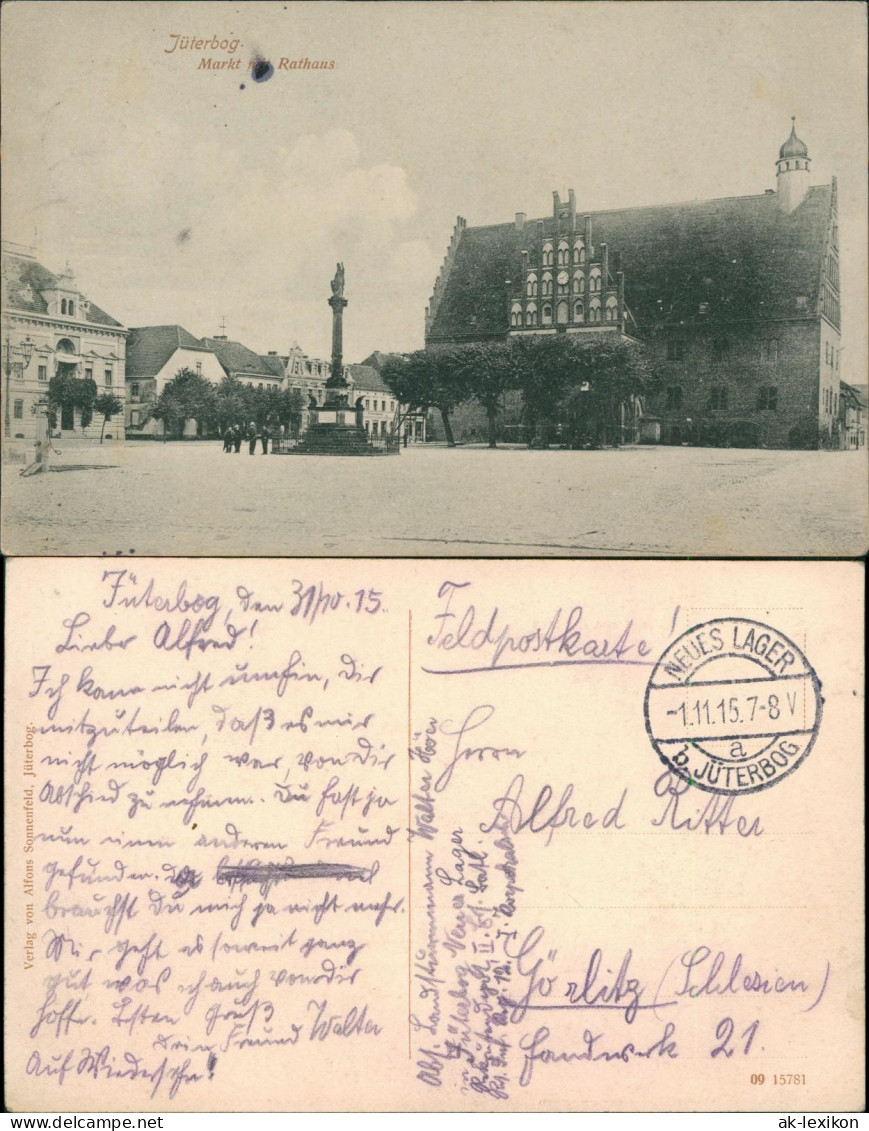 Jüterbog.
Markt mit Rathaus
Jüterbog, den 31/10.15.
Lieber Alfred!
Ich kann nicht umhin, Dir
mitzuteilen, daß es mir
nicht möglich war, von Dir
Abschied zu nehmen. Du hast ja
nun einen anderen Freund
gefunden.
brauchst Du mich ja nicht mehr.
Mir geht es soweit ganz
gut, was ich auch von Dir
hoffe. Besten Gruß
Dein Freund Walter
Auf Wiedersehn!
Verlag von Alfons Sonnenfeld, Jüterbog.
Feldpostkarte!
NEUES LAGER
-1.11.15.7-8 V
a
b. JÜTERBOG
Herrn
Alfred Ritter
Görlitz (Schlesien)
Handwerk 21.
Abs. Landsturmmann Walter
in Jüterbog Neues Lager
09 15781
ak-lexikon.com